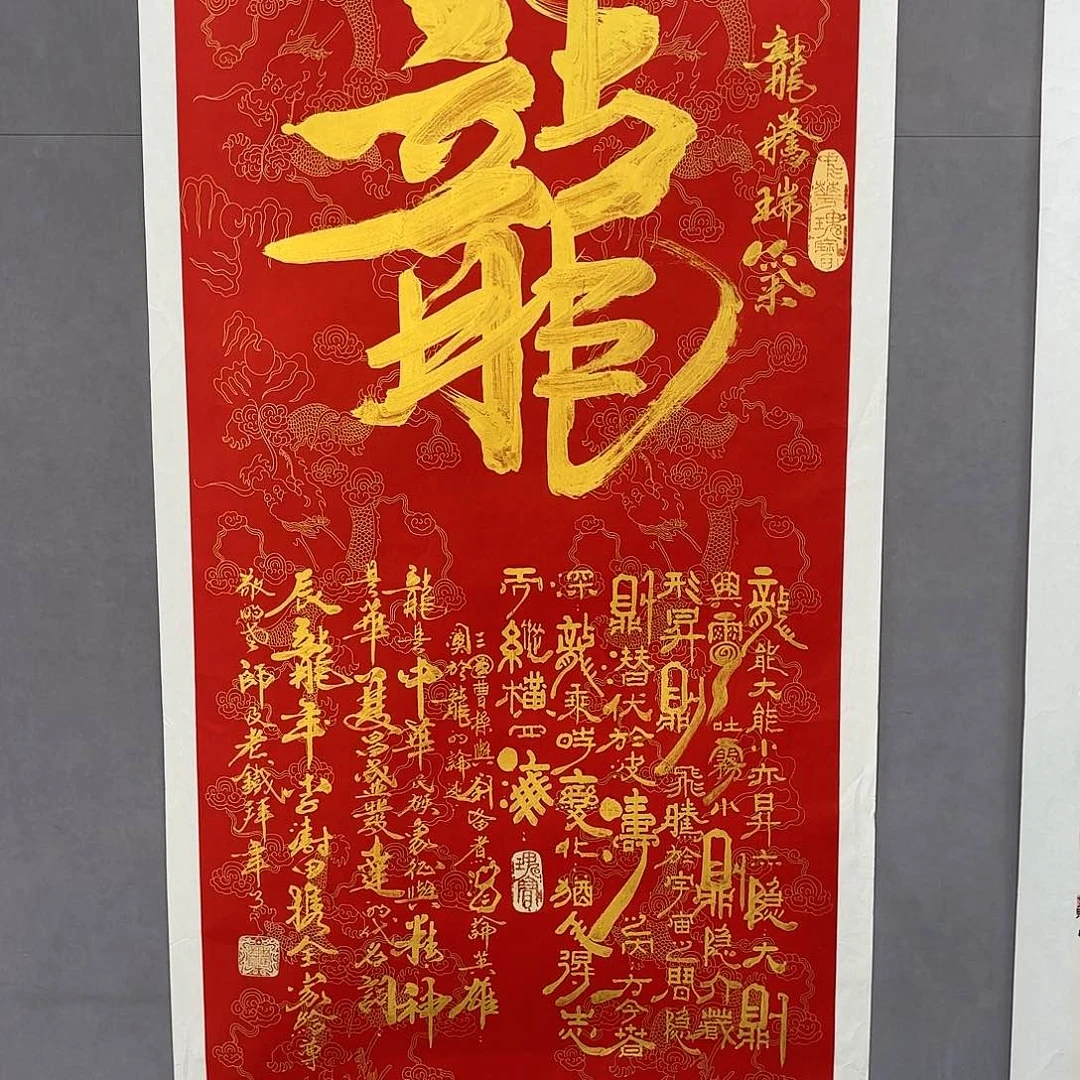 龍
龍騰瑞氣
中華瑰寶
龍能大能小亦昇亦隱大則
興雲吐霧小則隱介藏
形昇則飛騰於宇宙之間隱
則潛伏於波濤之內方今春
深龍乘時變化猶人得志
而縱橫四海
瑰寶
三國曹操與劉備煮酒論英雄
關於龍的論述
龍是中華民族象征與精神
是華夏昌盛發達的代名詞
辰龍年携全家給尊
敬的老師及老鐵拜年了